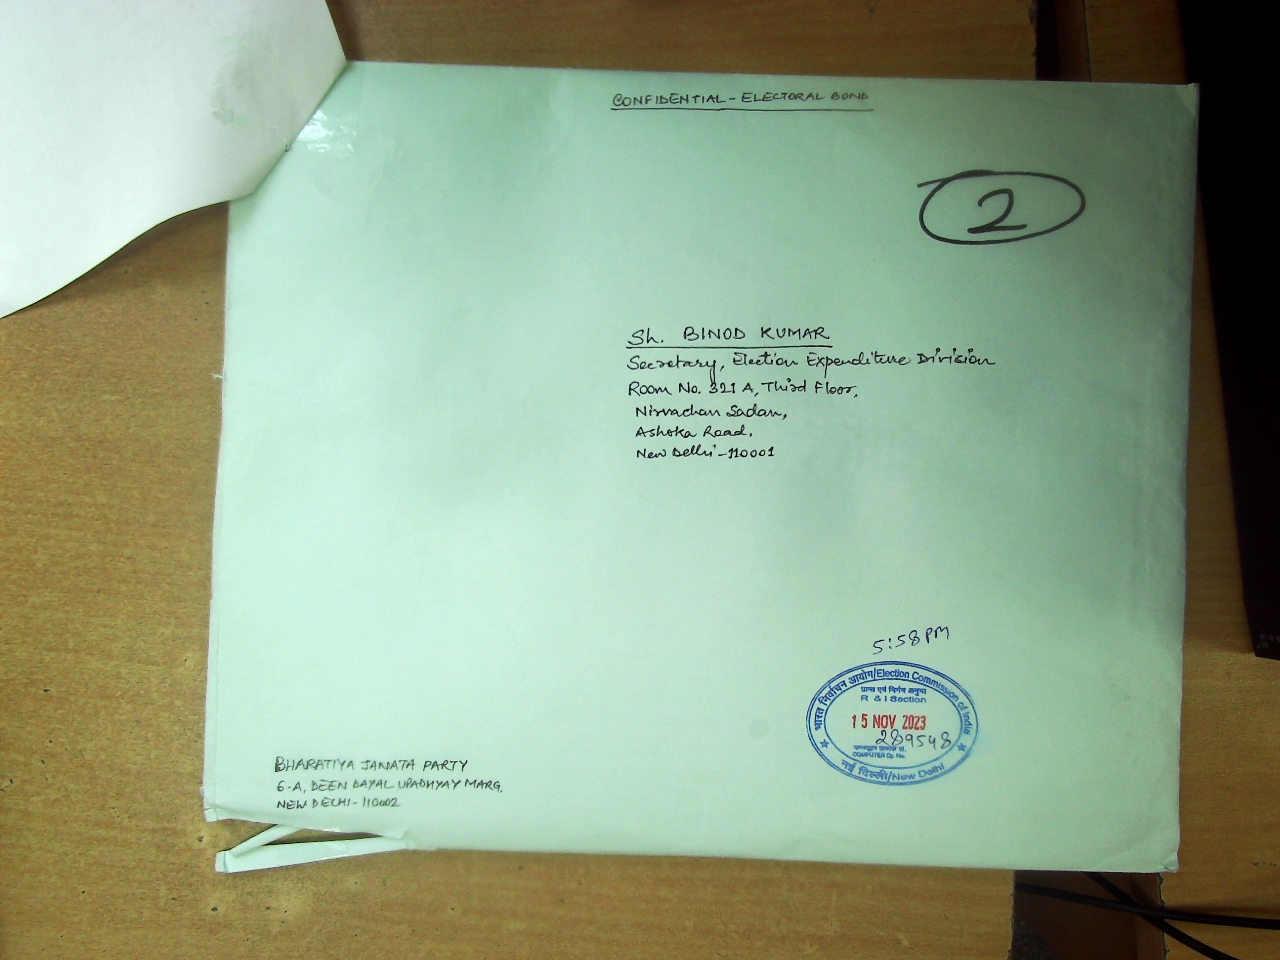 CONFIDENTIAL - ELECTORAL BOND
2
Sh. BINOD KUMAR
Secretary, Election Expenditure Division
Room No. 321 A, Third Floor,
Nirvachan Sadan,
Ashoka Road,
New Delhi - 110001
5:58 PM
भारत निर्वाचन आयोग/Election Commission of India
R & I Section
15 NOV 2023
289548
COMPUTER Dy No.
नई दिल्ली/New Delhi
BHARATIYA JANATA PARTY
6-A, DEEN DAYAL UPADHYAY MARG,
NEW DELHI - 110002